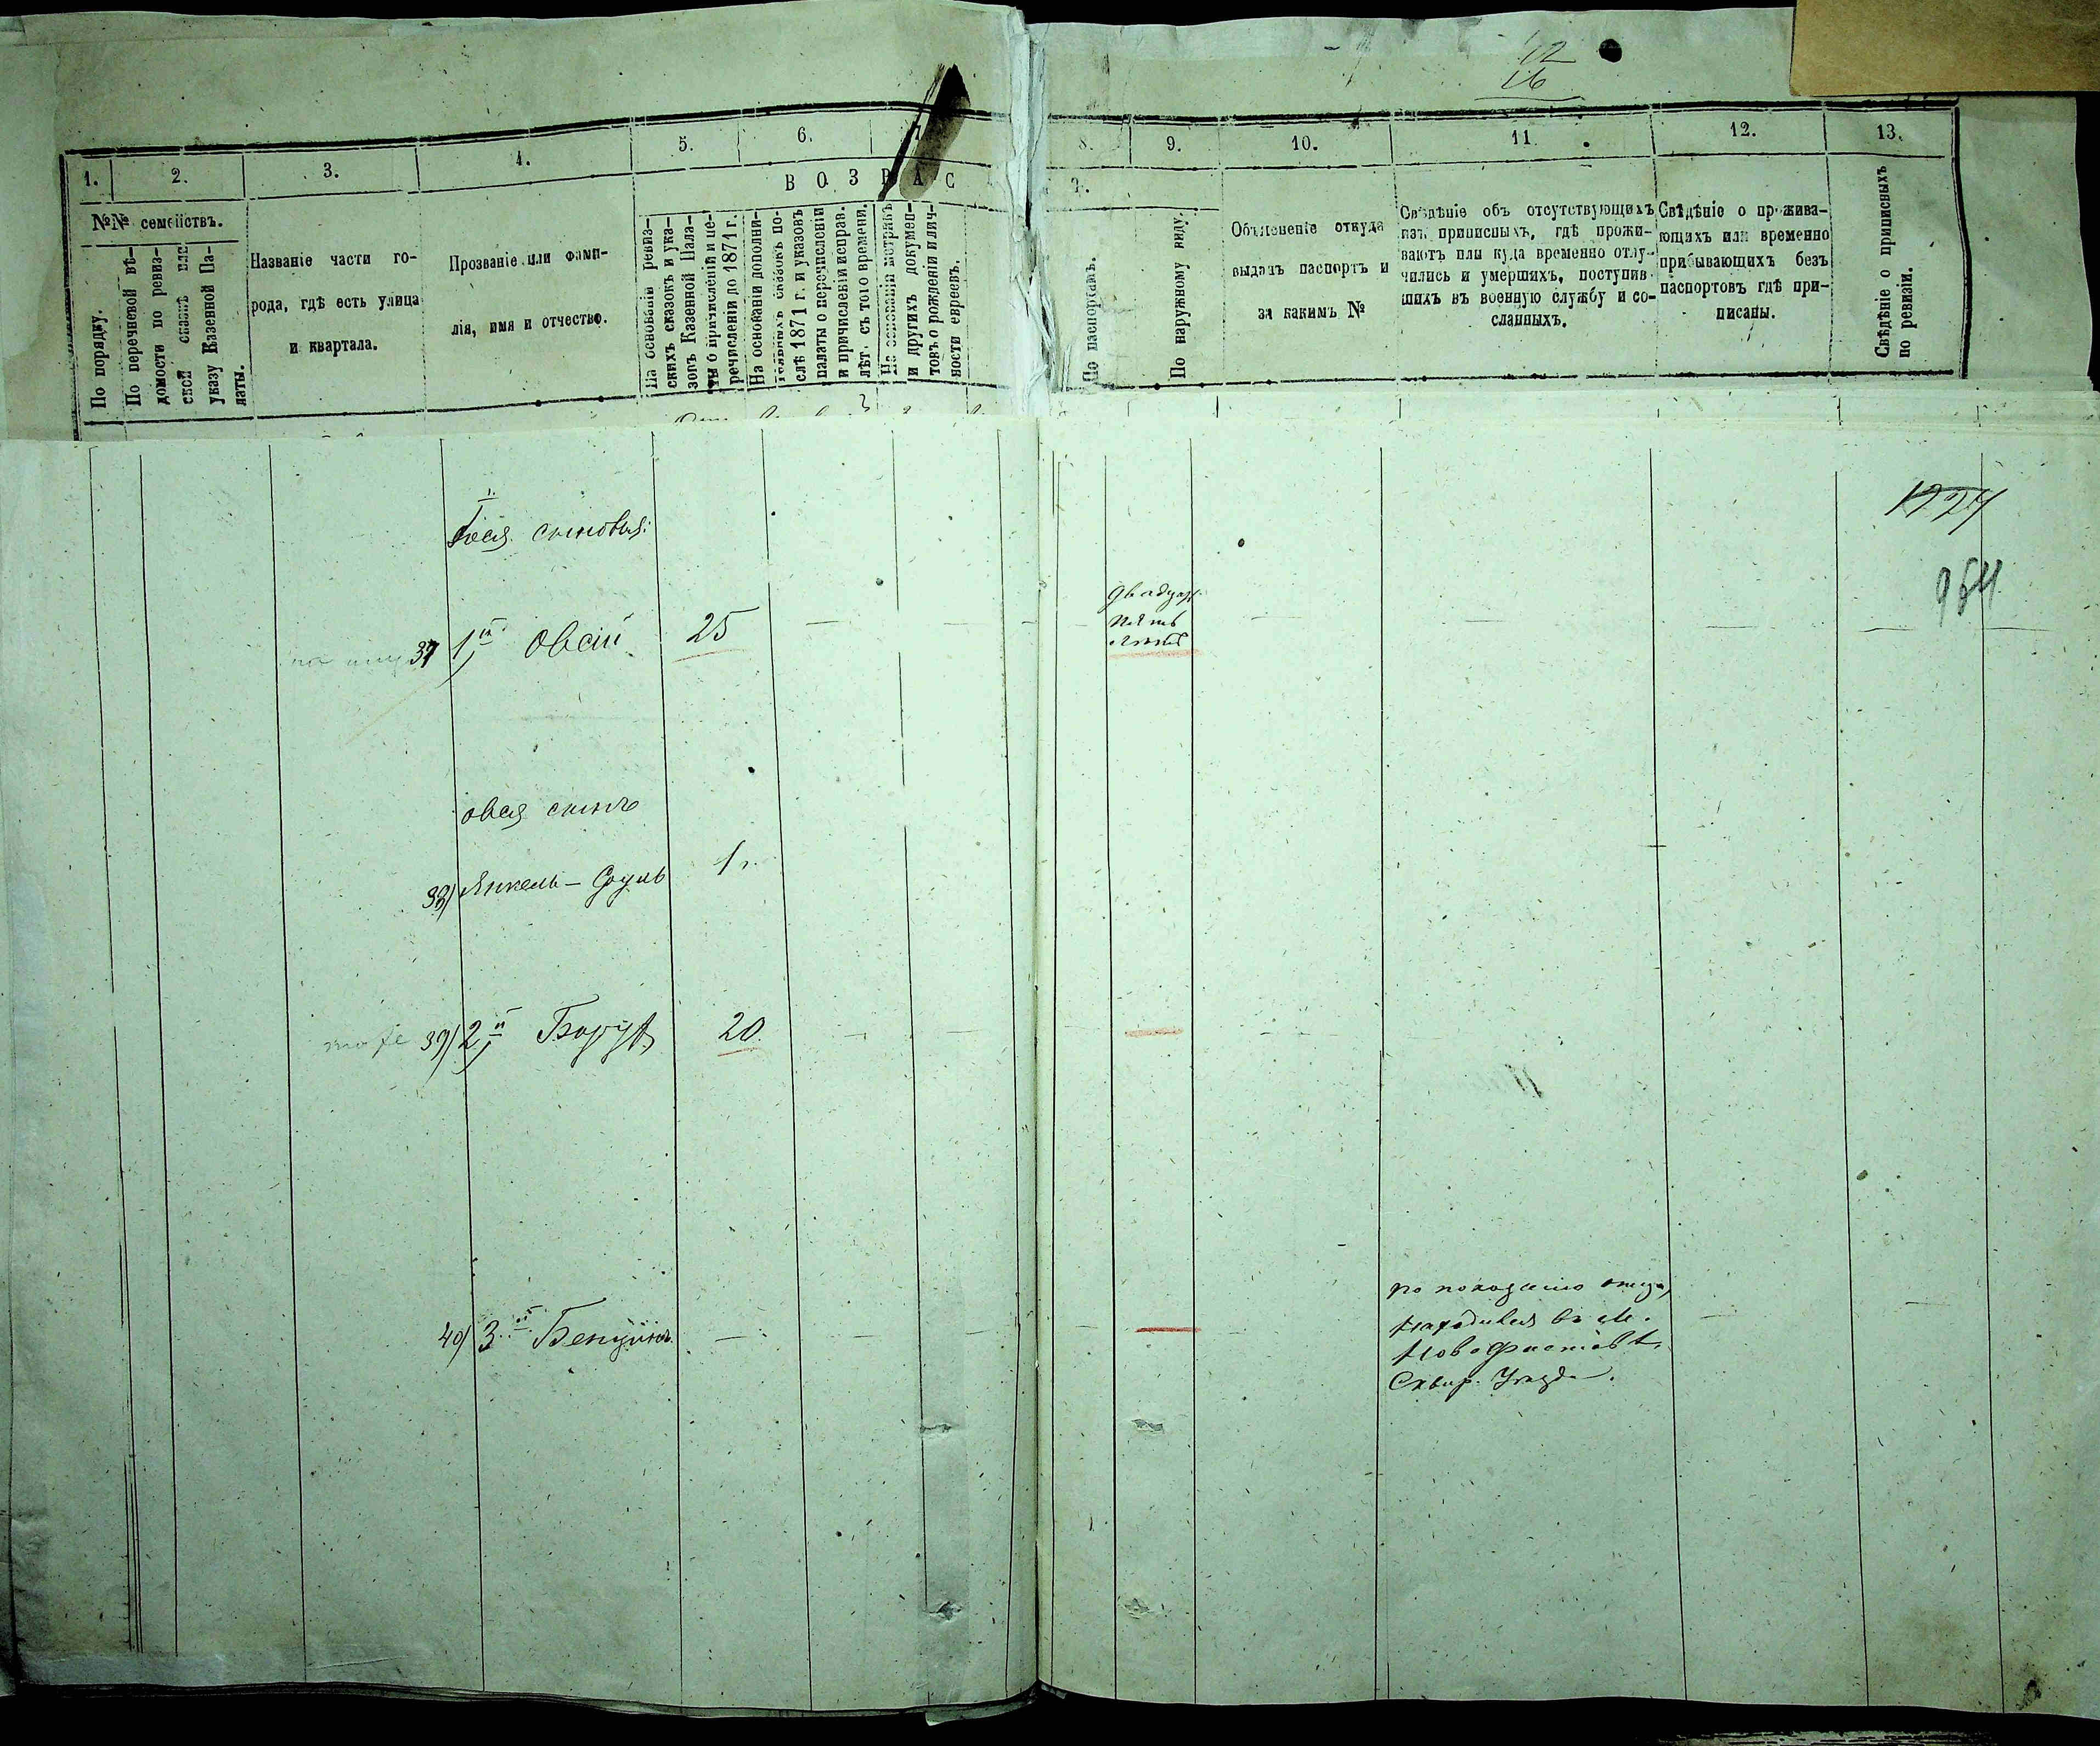 12
16
1. 2. 3. 4. 5. 6. 7. 8. 9. 10. 11. 12. 13.
ВОЗРАС Т.
№№ семействъ.
По порядку.
По перечневой вѣ-
домости по ревиз-
ской сказкѣ или
указу Казенной Па-
латы.
Названіе части го-
рода, гдѣ есть улица
и квартала.
Прозваніе или фами-
лія, имя и отчество.
На основаніи ревиз-
скихъ сказокъ и ука-
зовъ Казенной Пала-
ты о причисленіи и пе-
речисленіи до 1871 г.
На основаніи дополни-
тельныхъ сказокъ по-
слѣ 1871 г. и указовъ
палаты о перечисленіи
и причисленіи исправ.
лѣт. съ того времени.
На основаніи метрикъ
и другихъ докумен-
товъ о рожденіи и лич-
ности евреевъ.
По паспортамъ.
По наружному виду.
Объясненіе откуда
выданъ паспортъ и
за какимъ №
Свѣдѣніе объ отсутствующихъ
изъ приписныхъ, гдѣ прожи-
ваютъ или куда временно отлу-
чились и умершихъ, поступив-
шихъ въ военную службу и со-
сланныхъ.
Свѣдѣніе о прожива-
ющихъ или временно
прибывающихъ безъ
паспортовъ гдѣ при-
писаны.
Свѣдѣніе о приписныхъ
по ревизіи.
сыновья:
984
37 1й Овсій 25
двадцать
пять
лѣтъ
Овсія сынъ
38) Янкель - 1 г.
тоже 39) 2й Борухъ 20
40) 3й Бенціонъ
по показанію отца,
находился въ м.
Новофастовѣ,
Сквир. Уѣзда.